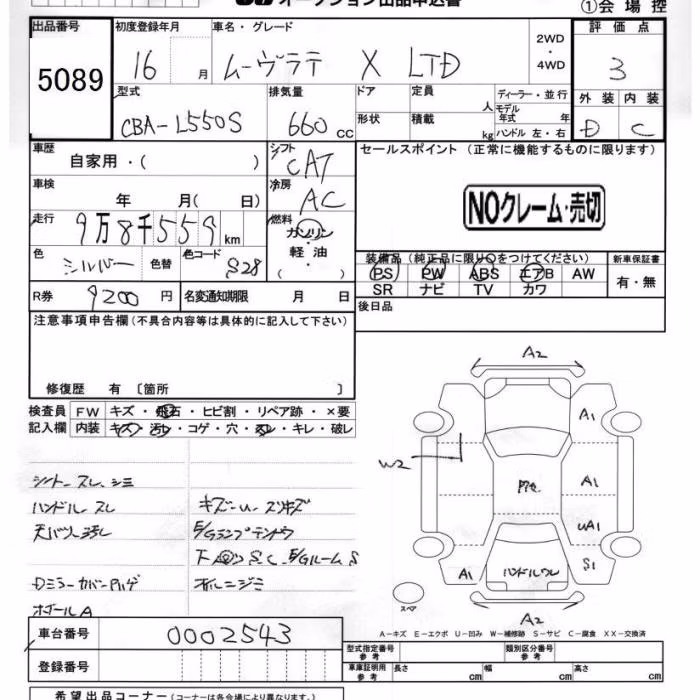 オークション出品申込書
①会場控
出品番号
5089
初度登録年月
16 月
車名・グレード
ムーヴラテ X LTD
2WD・4WD
評価点
3
型式
CBA-L550S
排気量
660 cc
ドア
定員 人
ディーラー・並行
モデル年式 年
形状
積載 kg
ハンドル 左・右
外装 内装
D C
車歴
自家用・( )
シフト
CAT
セールスポイント (正常に機能するものに限ります)
車検
年 月( 日)
冷房
AC
NOクレーム・売切
走行
9万8千559km
燃料
ガソリン・軽油
( )
色
シルバー
色替
色コード
S28
装備品(純正品に限り○をつけてください)
PS PW ABS エアB AW
SR ナビ TV カワ
新車保証書
有・無
R券
9200円
名変通知期限 月 日
後日品
注意事項申告欄(不具合内容等は具体的に記入して下さい)
修復歴 有 〔箇所 〕
検査員記入欄
FW キズ・飛石・ヒビ割・リペア跡・×要
内装 キズ・汚レ・コゲ・穴・スレ・キレ・破レ
シート スレ、シミ
ハンドル スレ
天バリ 汚レ
キズ-U-スリキズ
E/Gランプテントウ
S.C E/Gルーム S
Dミラーカバーハゲ
ホイールA
A2
A1
W2
A1
UA1
S1
A1
ハンドルウレ
A2
スペア
A-キズ E-エクボ U-凹み W-補修跡 S-サビ C-腐食 XX-交換済
車台番号
0002543
登録番号
型式指定番号 参考
類別区分番号 参考
車庫証明用 参考
長さ cm 幅 cm 高さ cm
希望出品コーナー(コーナーは各会場により異なります。)